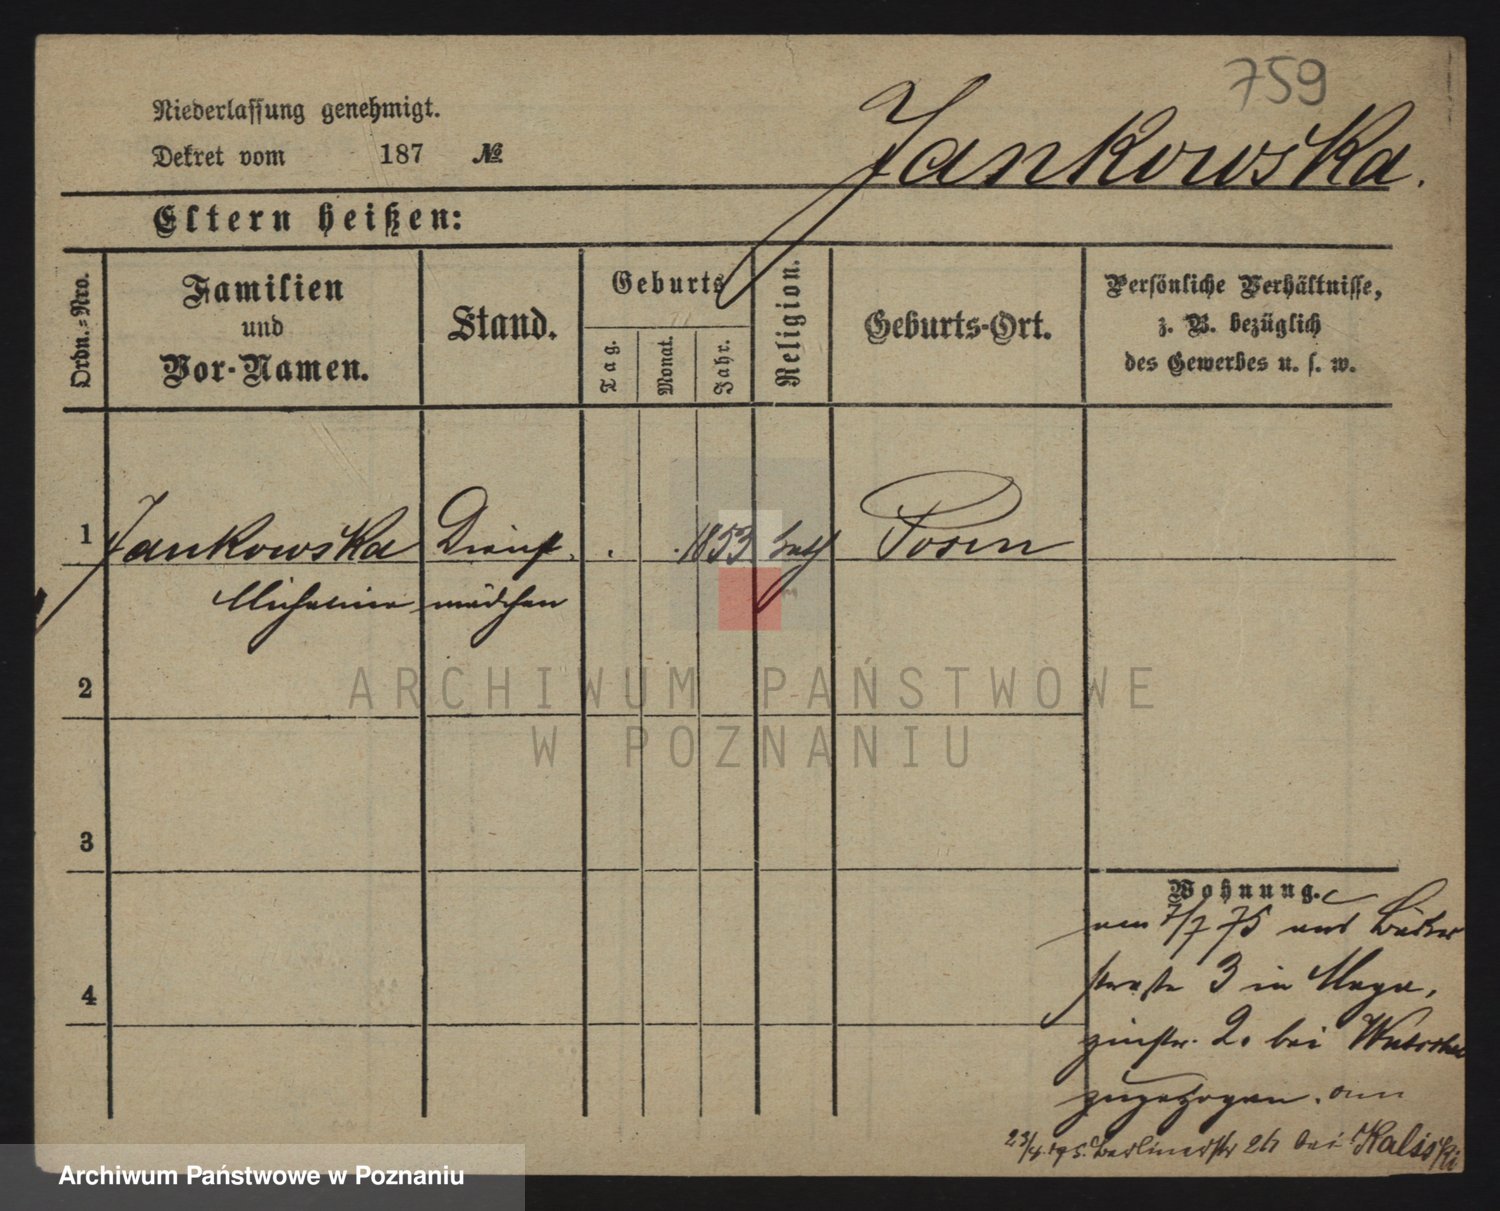 759
Niederlassung genehmigt.
Jankowska.
Dekret vom 187 №
Eltern heißen:
Ordn.-Nro.
Familien
und
Vor-Namen.
Stand.
Geburts
Tag.
Monat.
Jahr.
Religion.
Geburts-Ort.
Persönliche Verhältnisse,
z. B. bezüglich
des Gewerbes u. s. w.
1 Jankowska Dienst . . 1853 kath Posen
Michalina mädchen
2
3
4
Wohnung.
am 7/7 75 aus Bäcker
straße 3 in Maga,
zinstr. 2. bei
zugezogen. am
23/4 Berlinerstr bei Kaliski
ARCHIWUM PAŃSTWOWE
W POZNANIU
Archiwum Państwowe w Poznaniu